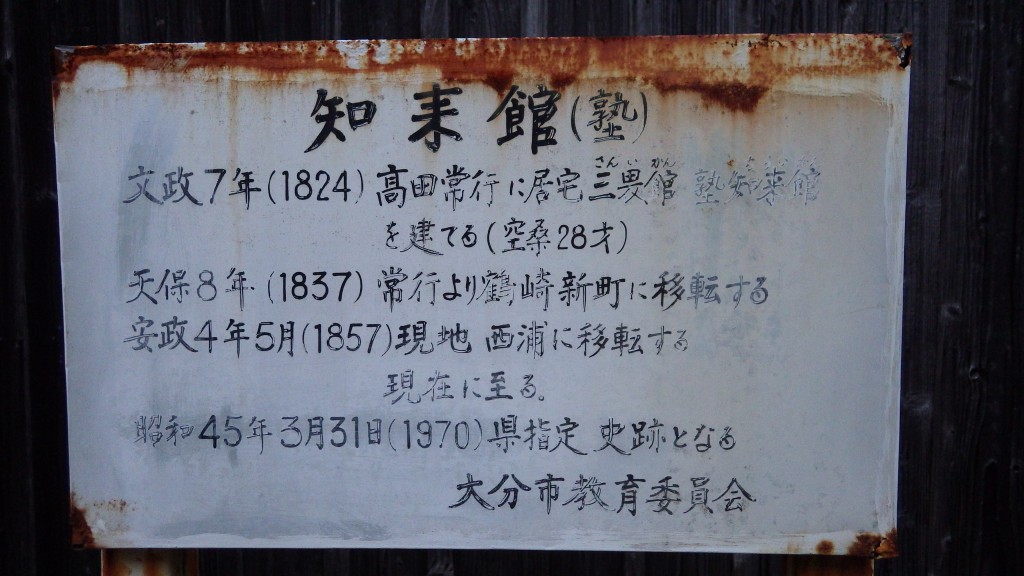 知来館(塾)
文政7年(1824)高田常行に居宅三畏館 塾知来館
を建てる(空桑28才)
天保8年(1837)常行より鶴崎新町に移転する
安政4年5月(1857)現地 西浦に移転する
現在に至る。
昭和45年3月31日(1970)県指定 史跡となる
大分市教育委員会